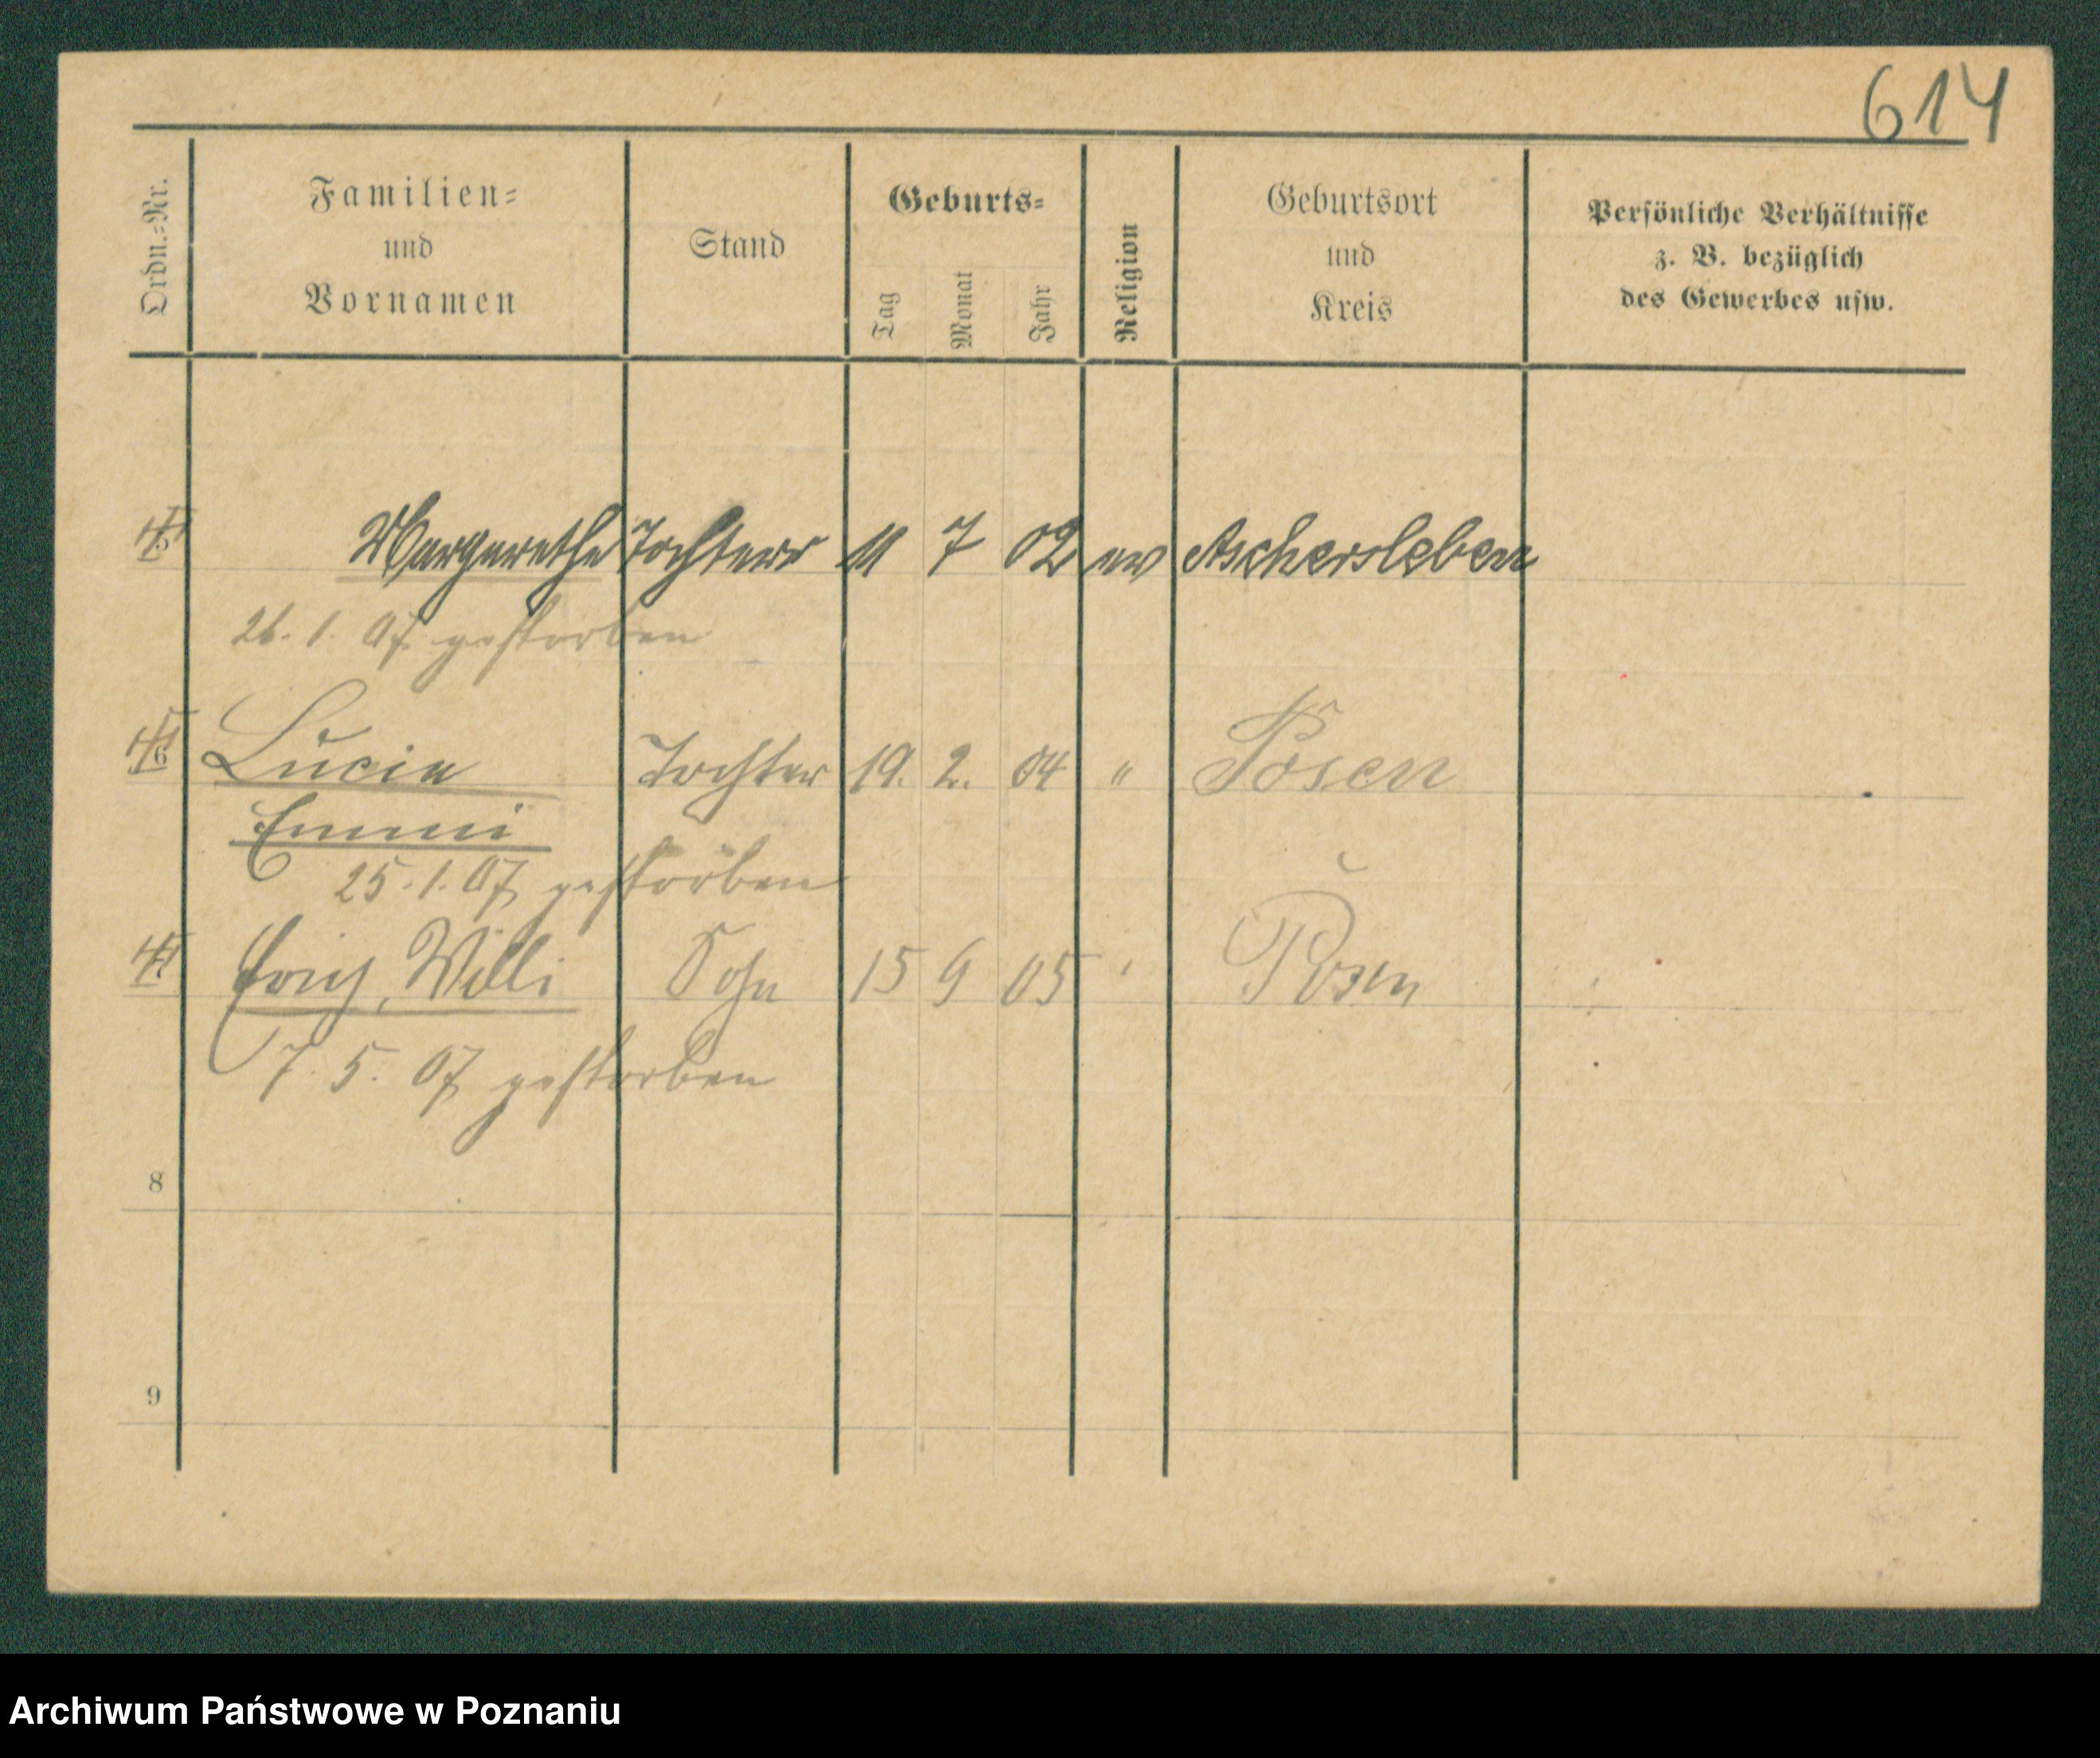 614
Ordn.-Nr.
Familien-
und
Vornamen
Stand
Geburts-
Tag
Monat
Jahr
Religion
Geburtsort
und
Kreis
Persönliche Verhältnisse
z. B. bezüglich
des Gewerbes usw.
5 Margarethe Tochter 11 7 02 ev Aschersleben
26. 1. 07 gestorben
6 Lucie Tochter 19. 2. 04 " Posen
Emmi
25. 1. 07 gestorben
7 Erich, Willi Sohn 15 9 05 " Posen
7. 5. 07 gestorben
8
9
Archiwum Państwowe w Poznaniu